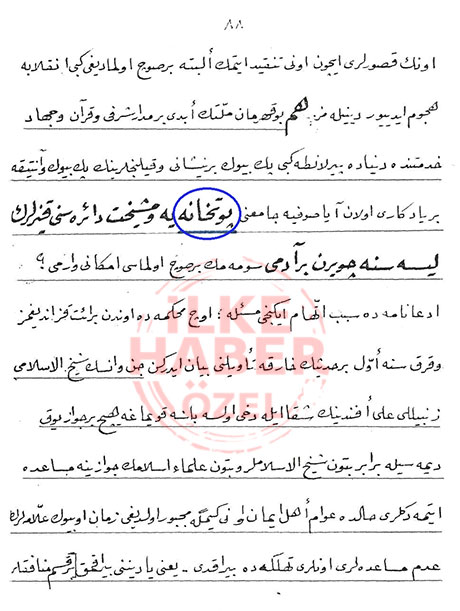 ٨٨
اونك قصورلرى ايچون اونى تنقيد ايتمك ألبته برصوچ اولماديغى كبى انقلابه
هجوم ايدييور دينيله مز. هم بوقهرمان ملتك أبدى برمدار شرفى وقرآن وجهاد
خدمتنده دنياده پيرلانطه كبى پك بيوك برنشانى وقيلنجلرينك پك بيوك وآنتيقه
بريادكارى اولان آياصوفيه جامعنى پوتخانه يه ومشيخت دائره سنى قيزلرك
ليسه سنه چويرن برآدمى سومه مك برصوچ اولماسى امكانى وارمى؟
ادعانامه ده سبب اتهام ايكنجى مسئله : اوچ محكمه ده اوندن برائت قزانديغمز
وقرق سنه أول برحديثك خارقه تأويلنى بيان ايدركن جن وانسك شيخ الاسلامى
زنبيللى على أفندينك شقا ايله دخى اولسه باشه قويماغه هيچ برجواز يوق
ديمه سيله برابر بتون شيخ الاسلاملر وبتون علماء اسلامك جوازينه مساعده
ايتمه دكلرى حالده عوام أهل ايمان اونى كيمگه مجبور اولديغى زمان اوبيوك علامه لرك
عدم مساعده لرى اونلرى تهلكه ده بيراقدى ـ يعنى يا دينى بيراقمق برقسم منافقلر
ILKE
HABER
ÖZEL